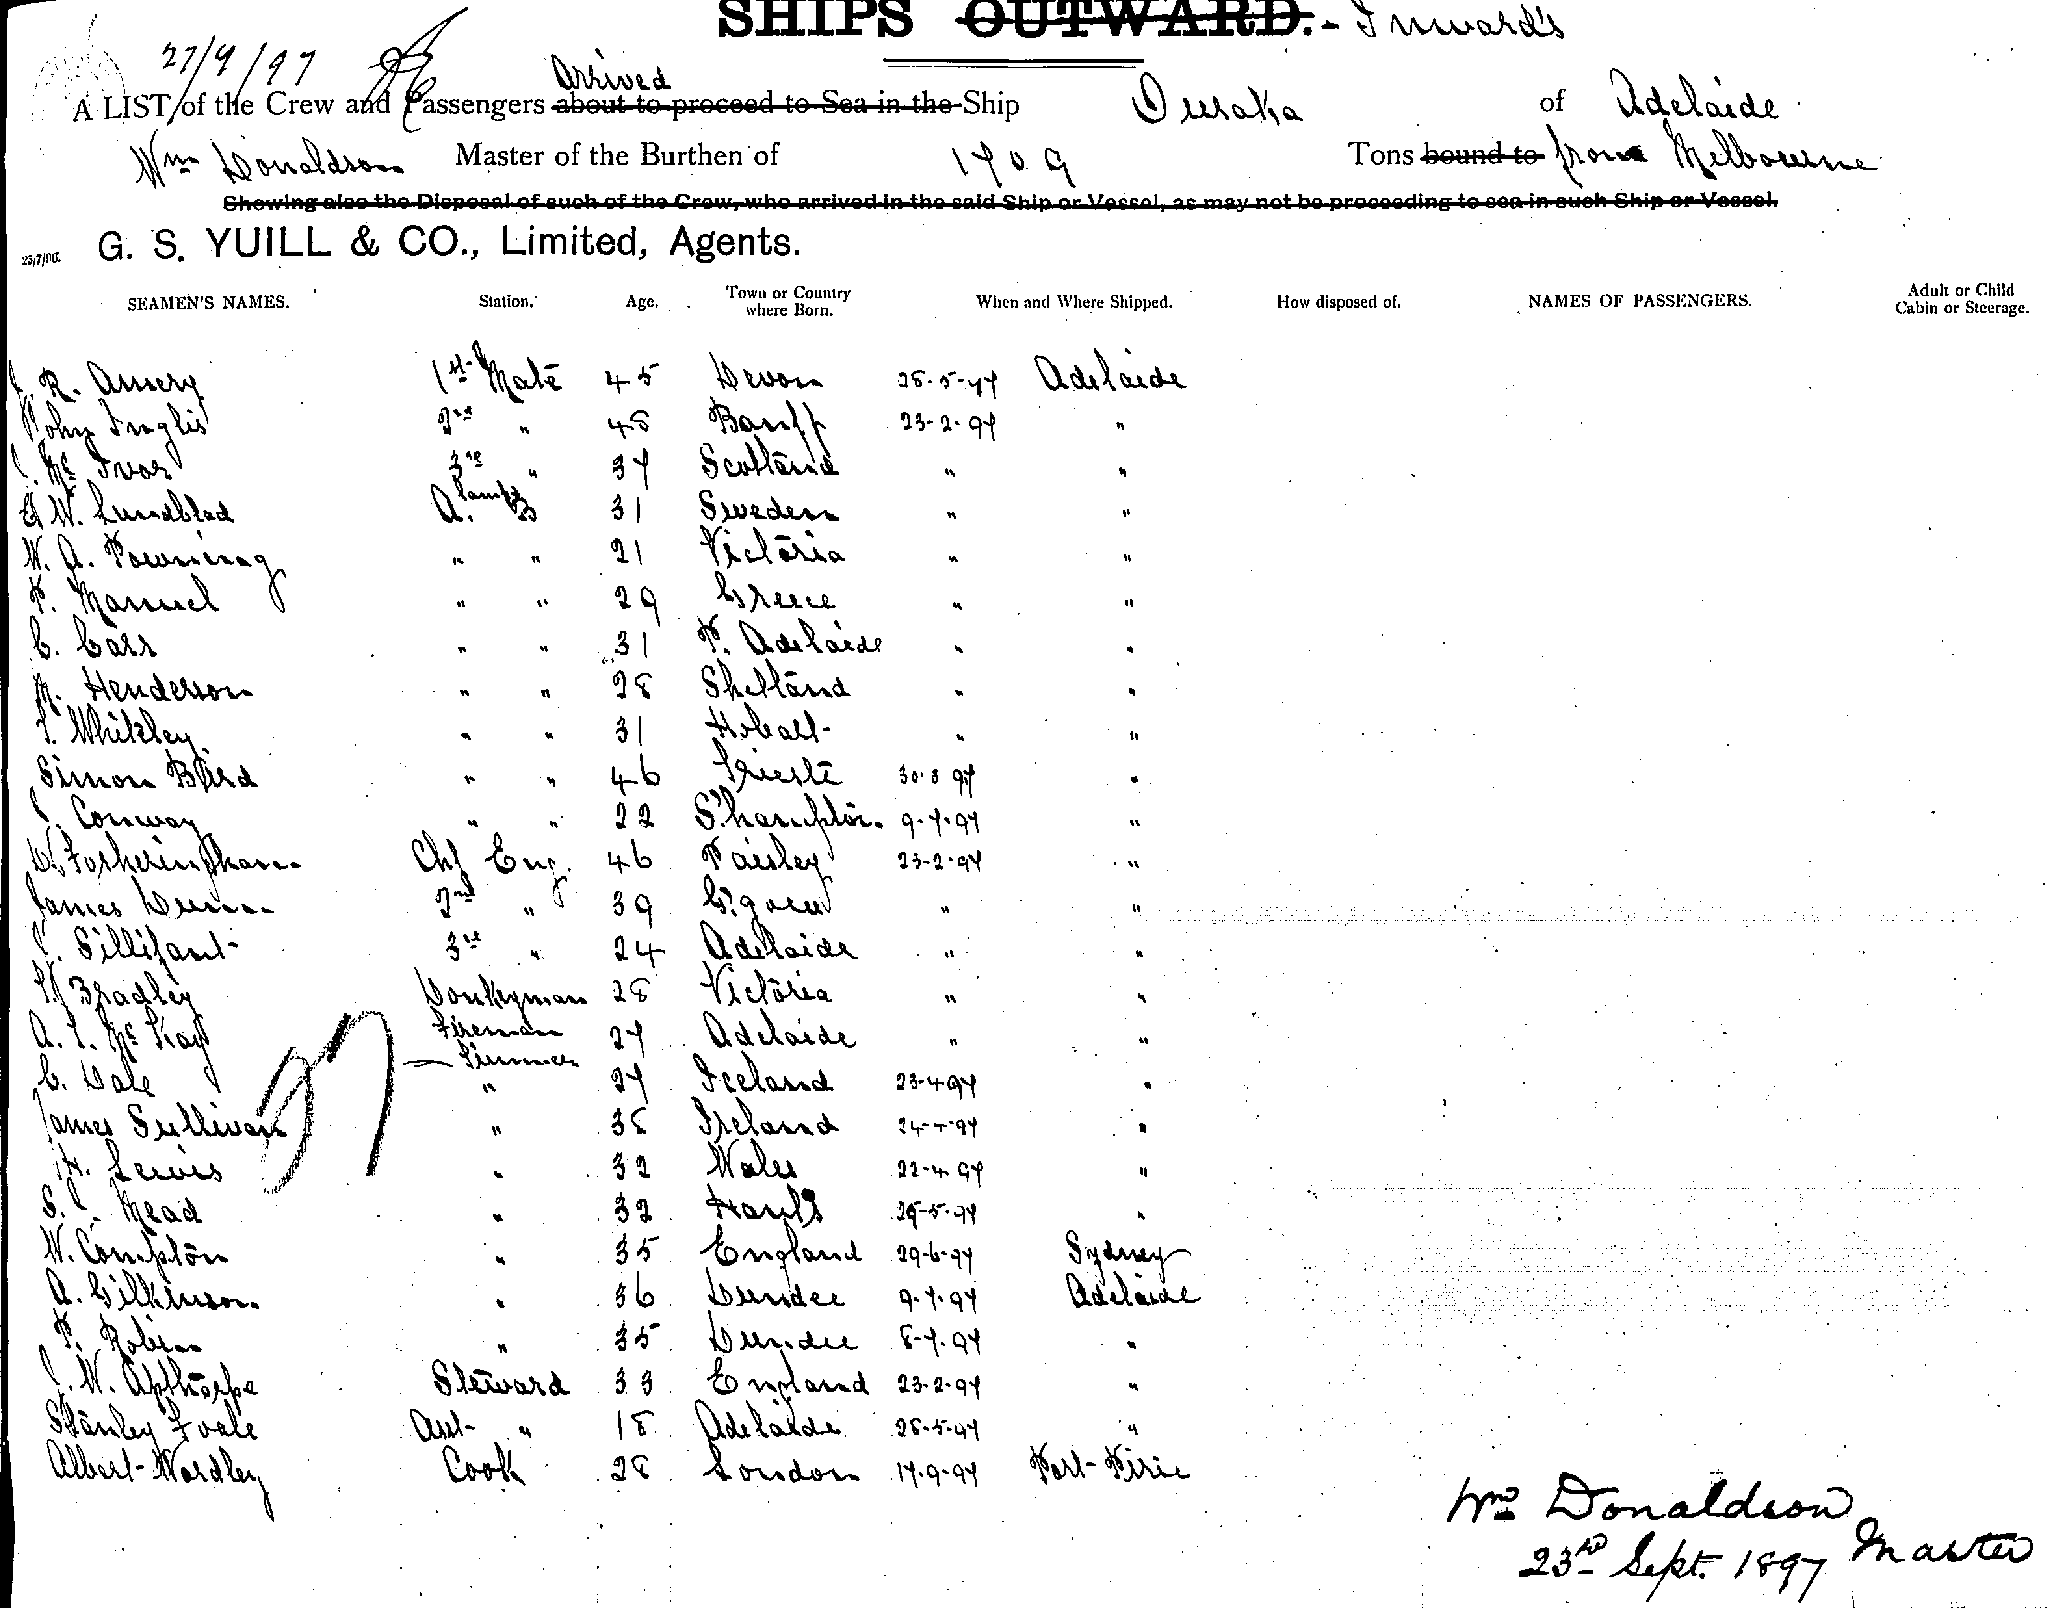 SHIPS OUTWARD. - Inwards
27/9/97
Arrived
A LIST of the Crew and Passengers about to proceed to Sea in the Ship Ouraka of Adelaide
Wm Donaldson Master of the Burthen of 1709 Tons bound to from Melbourne
Showing also the Disposal of such of the Crew, who arrived in the said Ship or Vessel, as may not be proceeding to sea in such Ship or Vessel.
G. S. YUILL & CO., Limited, Agents.
SEAMEN'S NAMES. Station. Age. Town or Country where Born. When and Where Shipped. How disposed of. NAMES OF PASSENGERS. Adult or Child Cabin or Steerage.
R. Amery 1st Mate 45 Devon 28-5-97 Adelaide
John Inglis 2nd " 48 Banff 23-2-97 "
Mc Ivor 3rd " 37 Scotland " "
W. Lundblad A. Lamps B 31 Sweden " "
W. A. Powning " " 21 Victoria " "
P. Manuel " " 29 Greece " "
C. Carr " " 31 P. Adelaide " "
M. Henderson " " 28 Shetland " "
T. Whitley " " 31 Hobart " "
Simon Bard " " 46 Trieste 30-3-97 "
J. Conway " " 22 S'hampton 9-7-97 "
W. Fotheringham Chf Eng. 46 Paisley 23-2-97 "
James Dunn 2nd " 39 G'gow " "
J. Sillifant 3rd " 24 Adelaide " "
Bradley Donkeyman 28 Victoria " "
A. L. McKay Fireman 27 Adelaide " "
Trimmer
C. Dale " 27 Iceland 23-4-97 "
James Sullivan " 38 Ireland 24-4-97 "
H. Lewis " 32 Wales 22-4-97 "
27
S. J. Mead " 32 Hants 29-5-97 "
W. Compton " 35 England 29-6-97 Sydney
A. Gilkinson " 36 Dundee 9-7-97 Adelaide
P. Robin " 35 Dundee 8-7-97 "
J. W. Apthorpe Steward 33 England 23-2-97 "
Stanley Foale Asst " 18 Adelaide 28-5-97 "
Albert Wardley Cook 28 London 17-9-97 Port Pirie
Wm Donaldson
23rd Sept. 1897 Master